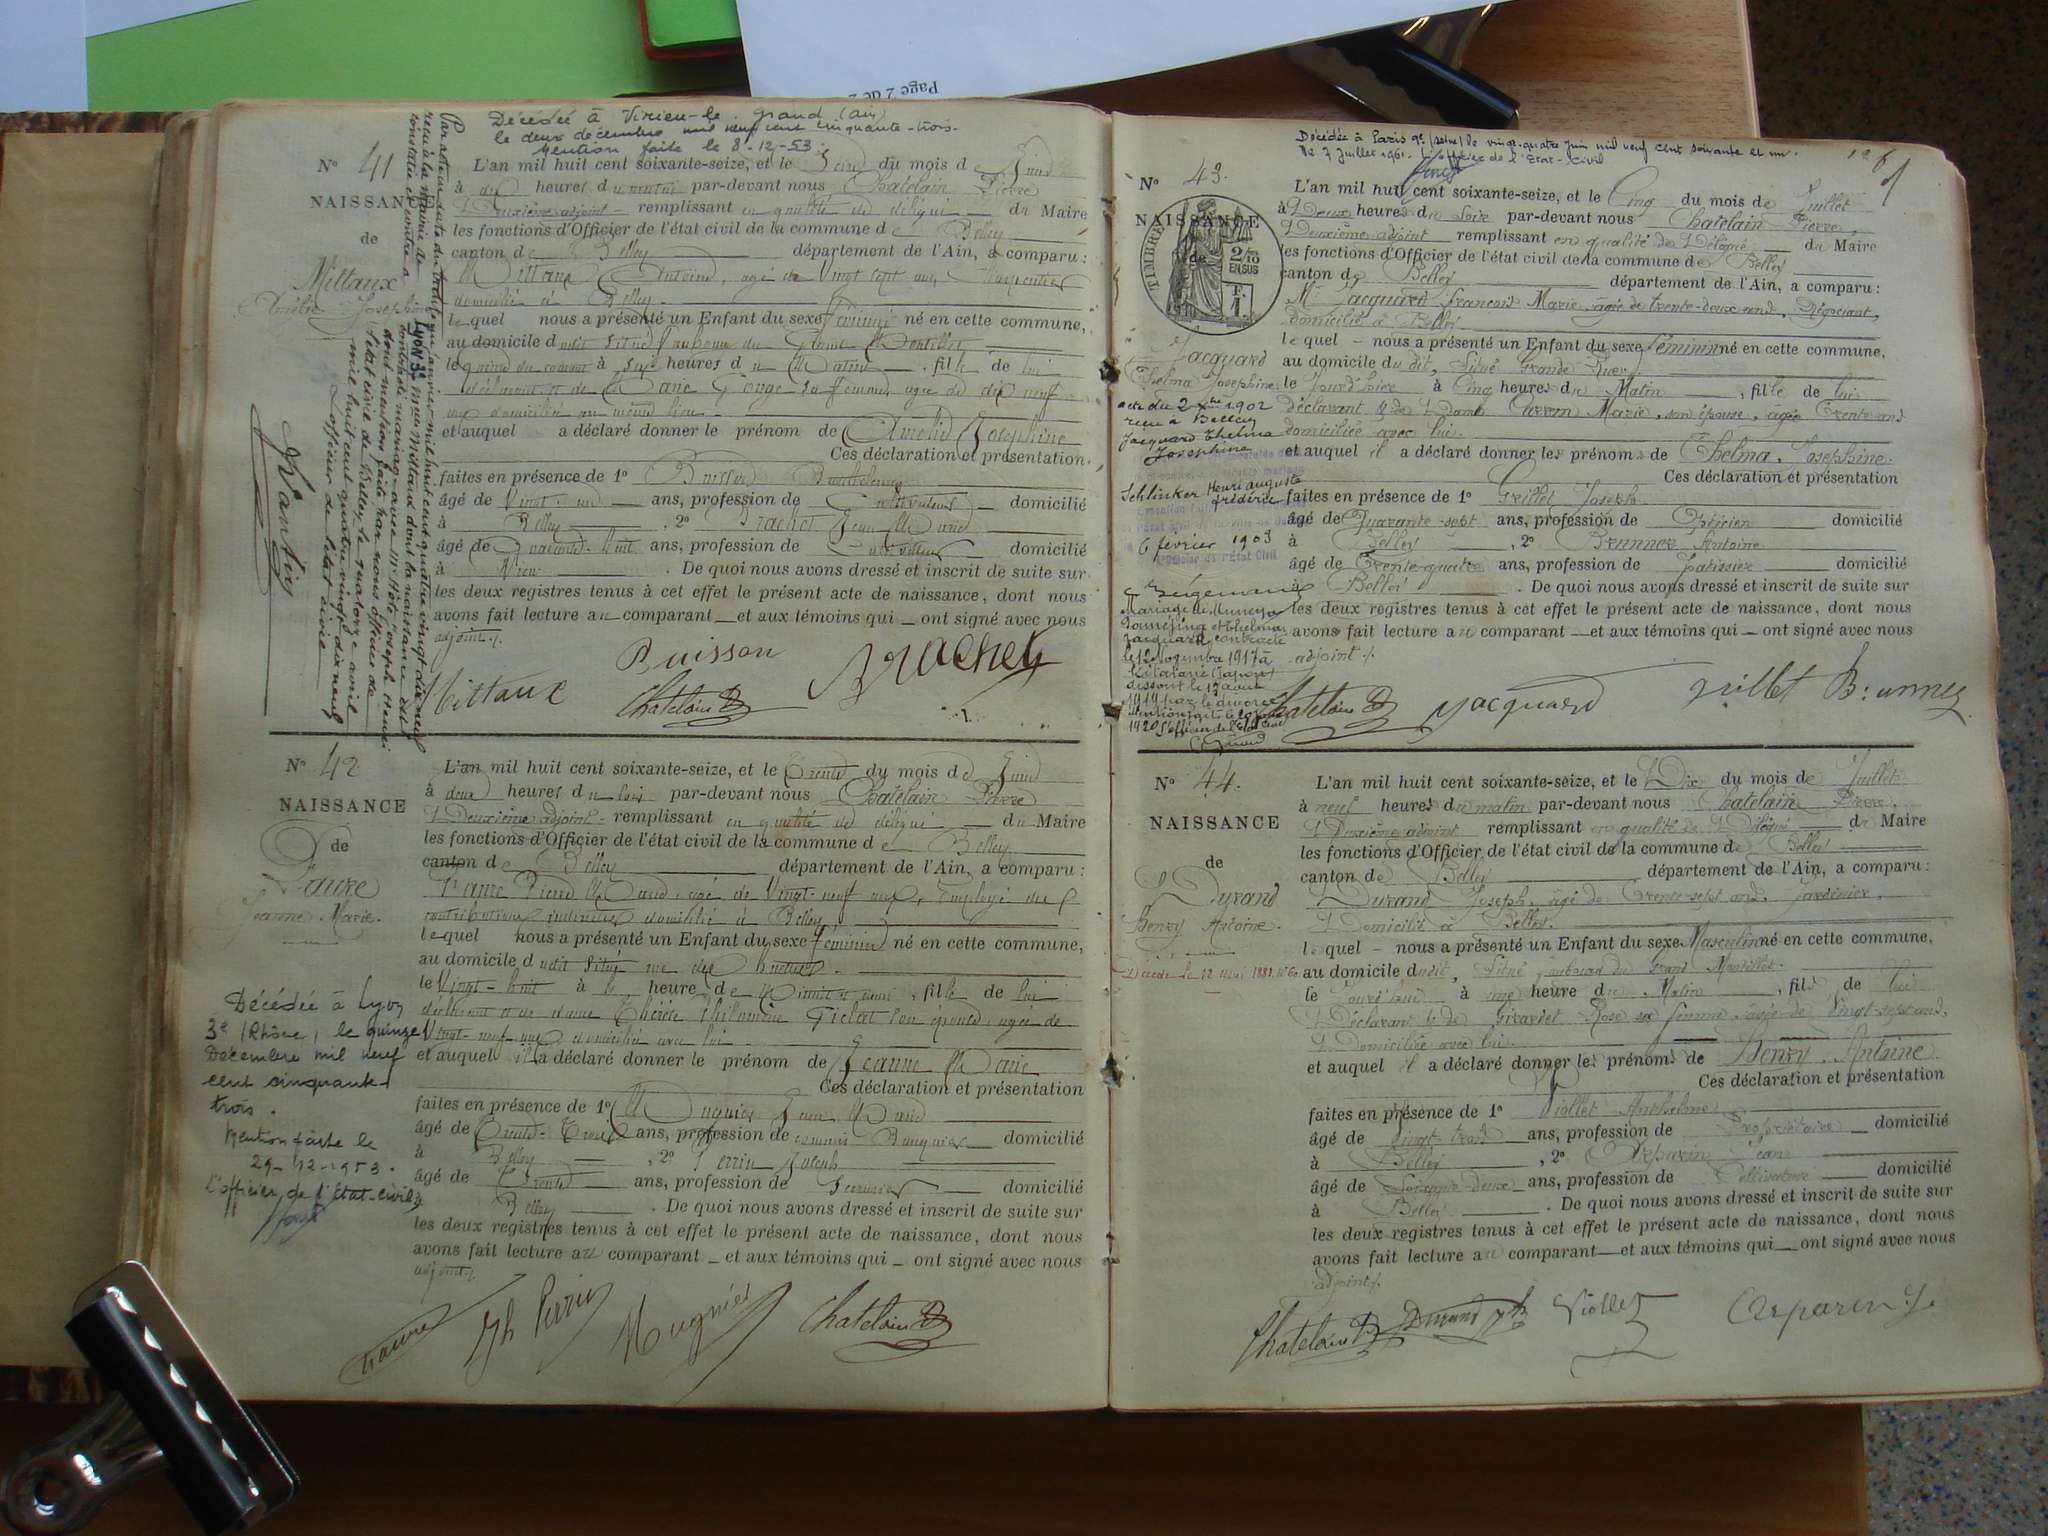 Page 2 de 2
Décédée à Virieu-le-Grand (ain)
le deux décembre mil neuf cent cinquante-trois.
Mention faite le 8-12-53.
N° 41
NAISSANCE
de
Mittaux
Amélie Joséphine
L'an mil huit cent soixante-seize, et le du mois de Juin
à dix heures du matin par-devant nous Chatelain Pierre
Deuxième adjoint remplissant en qualité de délégué du Maire
les fonctions d'Officier de l'état civil de la commune de Belley
canton de Belley département de l'Ain, a comparu:
Mittaux Antoine, agé de Vingt sept ans, Charpentier
domicilié à Belley
lequel nous a présenté un Enfant du sexe féminin né en cette commune,
au domicile dudit situé faubourg du Grand Montillet
le du courant à six heures du Matin, fille de lui
déclarant et de Marie sa femme, agée de dix neuf
ans domiciliée au même lieu
et auquel a déclaré donner le prénom de Amélie Joséphine
Ces déclaration et présentation
faites en présence de 1° Buisson
âgé de Vingt-un ans, profession de Cultivateur domicilié
à Belley, 2° Brachet Jean Marie
âgé de Quarante-huit ans, profession de Cultivateur domicilié
à . De quoi nous avons dressé et inscrit de suite sur
les deux registres tenus à cet effet le présent acte de naissance, dont nous
avons fait lecture au comparant et aux témoins qui ont signé avec nous
adjoint
Mittaux Buisson Chatelain Brachet
Par acte en date du trente un janvier mil huit cent quatre vingt dix neuf
reçu à la mairie de Lyon 3e
constaté ci-contre a contracté mariage avec Mr Joseph Henri
dont mention faite par nous officier de
l'état civil de Belley le quatorze avril
mil huit cent quatre vingt dix neuf
L'officier de l'état civil
N° 42
NAISSANCE
de
Faure
Jeanne Marie
L'an mil huit cent soixante-seize, et le Trente du mois de Juin
à deux heures du soir par-devant nous Chatelain Pierre
Deuxième adjoint remplissant en qualité de délégué du Maire
les fonctions d'Officier de l'état civil de la commune de Belley
canton de Belley département de l'Ain, a comparu:
Faure Pierre Marie, agé de Vingt-neuf ans, Employé des
contributions indirectes domicilié à Belley
lequel nous a présenté un Enfant du sexe féminin né en cette commune,
au domicile dudit situé rue des
le Vingt-huit à heure de, fille de lui
déclarant et de dame Thérèse Philomène son épouse, agée de
Vingt-neuf ans domiciliée avec lui
et auquel il a déclaré donner le prénom de Jeanne Marie
Ces déclaration et présentation
faites en présence de 1° Mugnier Jean Marie
âgé de Trente-Trois ans, profession de commis Banquier domicilié
à Belley, 2° Perrin Joseph
âgé de Trente ans, profession de domicilié
à Belley. De quoi nous avons dressé et inscrit de suite sur
les deux registres tenus à cet effet le présent acte de naissance, dont nous
avons fait lecture au comparant et aux témoins qui ont signé avec nous
adjoint
Faure Jh Perrin Mugnier Chatelain
Décédée à Lyon
3e (Rhône) le quinze
Décembre mil neuf
cent cinquante
trois.
Mention faite le
29-12-1953.
l'officier de l'état-civil
Décédée à Paris 9e (seine) le vingt-quatre juin mil neuf cent soixante et un.
Le 7 juillet 1961. L'officier de l'Etat-Civil
N° 43.
NAISSANCE
de
TIMBRE
2/10
EN SUS
F.
1.
Jacquard
Thelma Joséphine
L'an mil huit cent soixante-seize, et le Cinq du mois de Juillet
à Deux heures du Soir par-devant nous Chatelain Pierre,
Deuxième adjoint remplissant en qualité de Délégué du Maire
les fonctions d'Officier de l'état civil de la commune de Belley
canton de Belley département de l'Ain, a comparu:
Mr Jacquard François Marie, âgé de trente-deux ans, Négociant,
domicilié à Belley
lequel nous a présenté un Enfant du sexe féminin né en cette commune,
au domicile du dit, Situé Grande Rue,
le Jourd'hier à Cinq heures du Matin, fille de lui
déclarant & de Dame Marie, son épouse, agée Trente ans
domiciliée avec lui.
et auquel il a déclaré donner les prénoms de Thelma, Joséphine.
Ces déclaration et présentation
faites en présence de 1° Grillet Joseph
âgé de Quarante-sept ans, profession de Opticien domicilié
à Belley, 2° Brunner Antoine
âgé de Trente-quatre ans, profession de Patissier domicilié
à Belley. De quoi nous avons dressé et inscrit de suite sur
les deux registres tenus à cet effet le présent acte de naissance, dont nous
avons fait lecture au comparant et aux témoins qui ont signé avec nous
adjoint
Chatelain Jacquard Grillet Brunner
acte du 2 1902
reçu à Belley
Jacquard Thelma
Joséphine
Schlinker Henri auguste
frédéric
6 février 1903
Officier de l'Etat Civil
Mariage de
et Thelma
Jacquard contracté
le 12 Novembre 1917 à
(Japon)
dissout le 13 aout
1919 par le divorce
1920 l'officier de l'état civil
N° 44.
NAISSANCE
de
Durand
Henry Antoine.
Décédé le 12 Mai 1881.
L'an mil huit cent soixante-seize, et le Dix du mois de Juillet
à neuf heures du matin par-devant nous Chatelain Pierre
Deuxième adjoint remplissant en qualité de Délégué du Maire
les fonctions d'Officier de l'état civil de la commune de Belley
canton de Belley département de l'Ain, a comparu:
Durand Joseph, âgé de Trente-sept ans, Jardinier,
Domicilié à Belley.
lequel nous a présenté un Enfant du sexe Masculin né en cette commune,
au domicile dudit, Situé faubourg du Grand Montillet
le à une heure du Matin, fils de lui
Déclarant & de Girardet Rose sa femme, âgée de Vingt-sept ans,
Domiciliée avec lui.
et auquel il a déclaré donner les prénoms de Henry, Antoine.
Ces déclaration et présentation
faites en présence de 1° Viollet Anthelme
âgé de Vingt-trois ans, profession de Propriétaire domicilié
à Belley, 2° Jean
âgé de ans, profession de Cultivateur domicilié
à Belley. De quoi nous avons dressé et inscrit de suite sur
les deux registres tenus à cet effet le présent acte de naissance, dont nous
avons fait lecture au comparant et aux témoins qui ont signé avec nous
adjoint.
Chatelain Durand Viollet